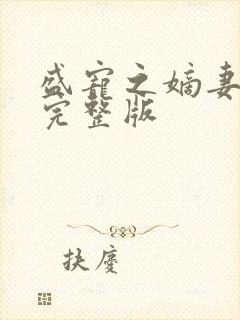 盛宠之嫡妻
完整版
扶廈